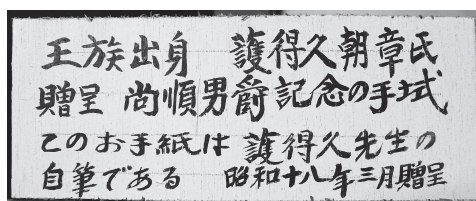 王族出身 護得久朝章氏
贈呈 尚順男爵記念の手拭
このお手紙は 護得久先生の
自筆である 昭和十八年三月贈呈